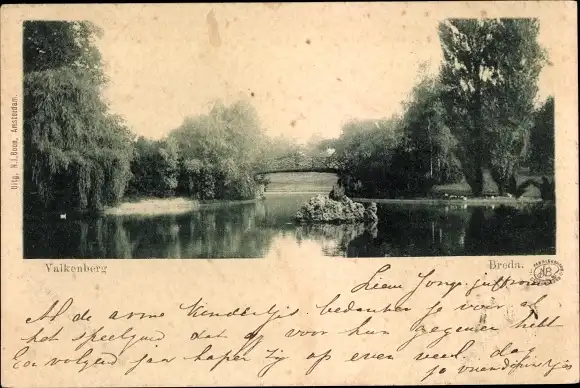 Uitg. N.J. Boon, Amsterdam.
Valkenberg
Breda.
Lieve Jonge juffrouw
Al de arme kindertjes bedanken je voor al
het speelgoed dat je voor hun gegeven hebt
En volgend jaar hopen zij op even veel. dag
je vriendinnetjes